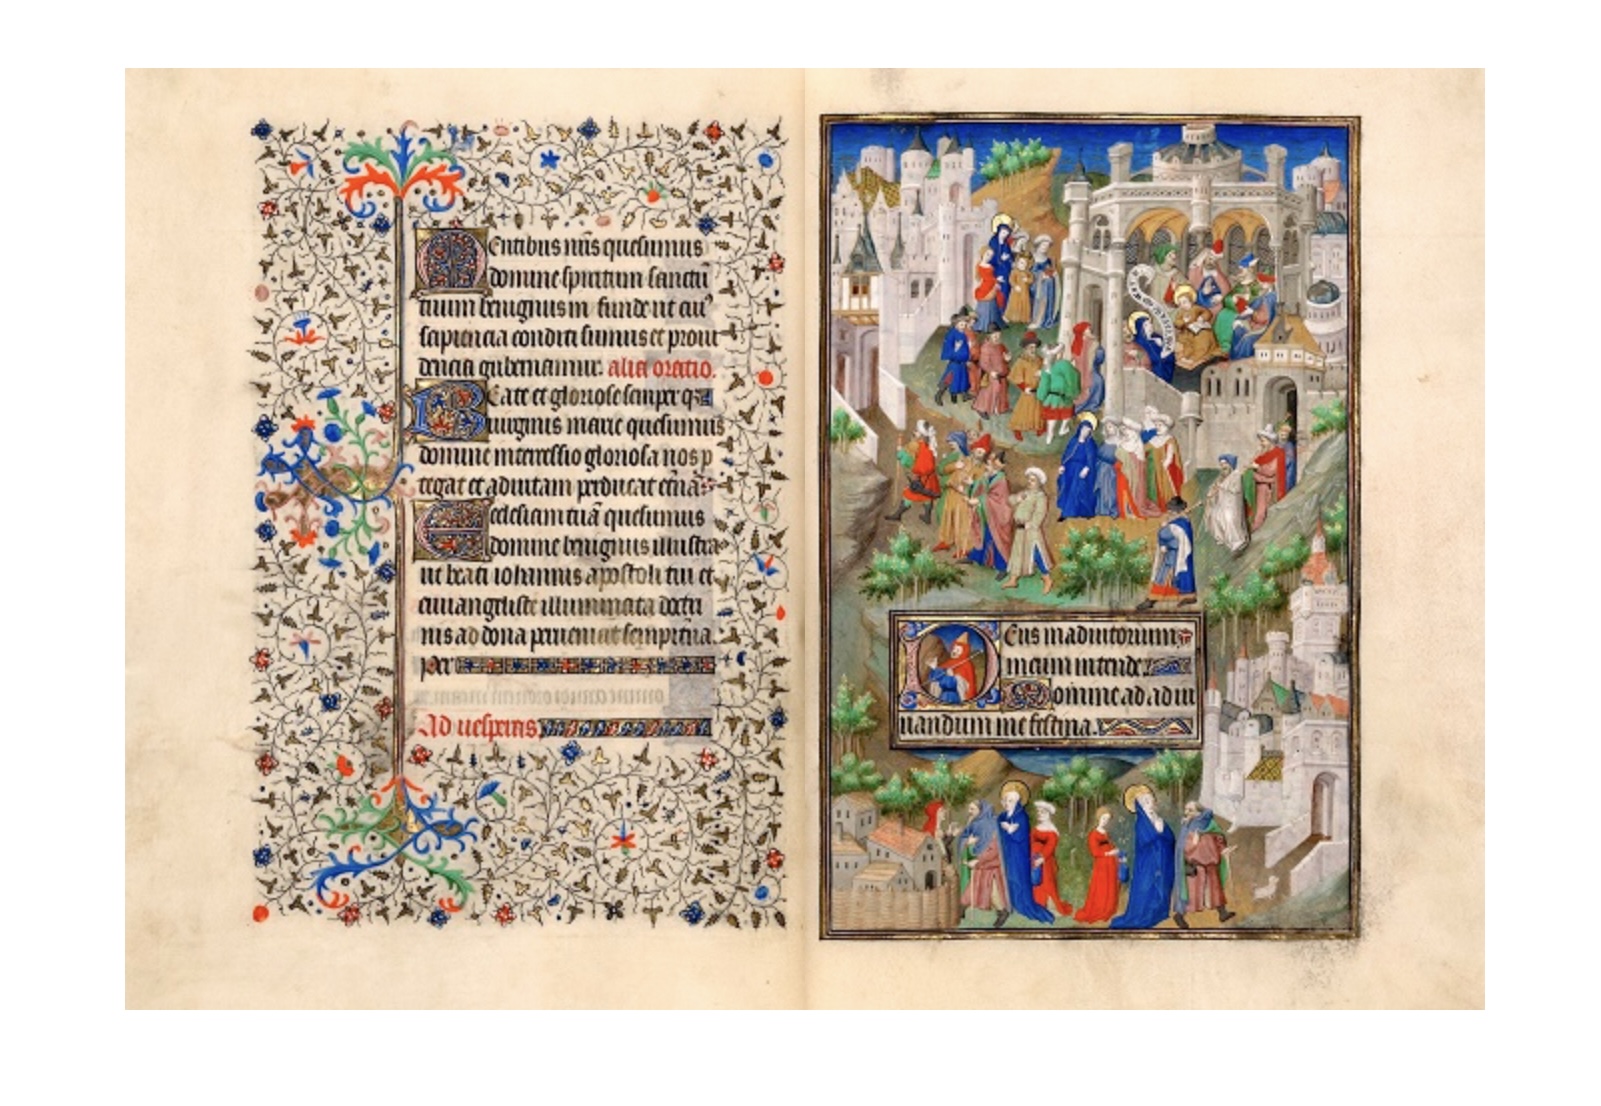 Mentibus nr̄is quesumus
domine spiritum sanctū
tuum benignus in funde ut cuiꝰ
sapiencia conditi sumus et proui
dencia gubernamur. alia oratio.
Beate et gloriose semper qꝫ
uirginis marie quesumus
domine intercessio gloriosa nos p
tegat et ad uitam perducat et̄nā:
Ecclesiam tuā quesumus
domine benignus illustra
ut beati iohannis apostoli tui et
euuangeliste illuminata doctri
nis ad dona perueniat sempit̄na.
Per
Ad uesperas
Deus in adiutorium
meum intende
Domine ad adiu
uandum me festina.